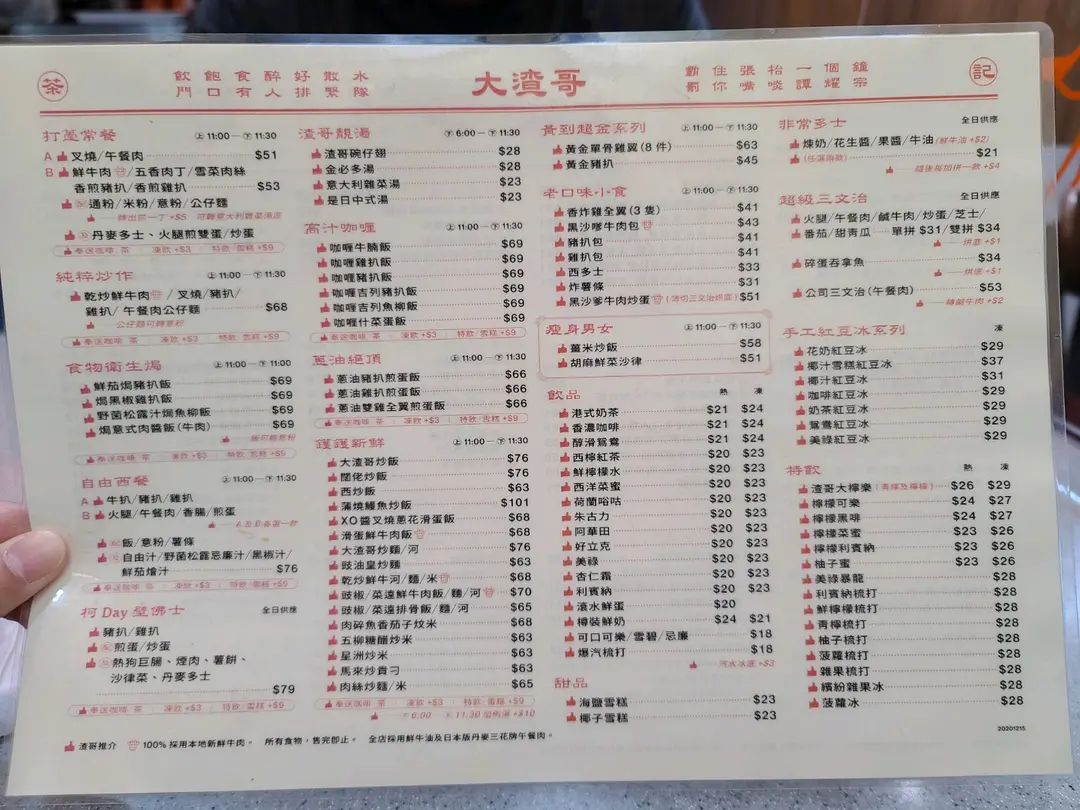 茶
飲飽食醉好散水
門口有人排緊隊
大渣哥
霸住張枱一個鐘
劉你嘴啖譚耀宗
記
打躉常餐 上11:00—下11:30
A 叉燒/午餐肉 $51
B 鮮牛肉/五香肉丁/雪菜肉絲
香煎豬扒/香煎雞扒 $53
通粉/米粉/意粉/公仔麵
丹麥多士、火腿煎雙蛋/炒蛋
奉送咖啡 茶 凍飲+$3 特飲/雪糕+$9
純粹炒作 上11:00—下11:30
乾炒鮮牛肉/叉燒/豬扒/
雞扒/午餐肉公仔麵 $68
公仔麵可轉意粉
奉送咖啡 茶 凍飲+$3 特飲/雪糕+$9
食物衛生焗 上11:00—下11:00
鮮茄焗豬扒飯 $69
焗黑椒雞扒飯 $69
野菌松露汁焗魚柳飯 $69
焗意式肉醬飯(牛肉) $69
飯可轉意粉
奉送咖啡 茶 凍飲+$3 特飲/雪糕+$9
自由西餐 上11:00—下11:30
A 牛扒/豬扒/雞扒
B 火腿/午餐肉/香腸/煎蛋
飯/意粉/薯條
自由汁/野菌松露忌廉汁/黑椒汁/
鮮茄燴汁 $76
奉送咖啡 茶 凍飲+$3 特飲/雪糕+$9
柯Day堅佛士 全日供應
豬扒/雞扒
煎蛋/炒蛋
熱狗巨腸、煙肉、薯餅、
沙律菜、丹麥多士
$79
奉送咖啡 茶 凍飲+$3 特飲/雪糕+$9
渣哥靚湯 下6:00—下11:30
渣哥碗仔翅 $28
金必多湯 $28
意大利雜菜湯 $23
是日中式湯 $23
高汁咖喱 上11:00—下11:30
咖喱牛腩飯 $69
咖喱雞扒飯 $69
咖喱豬扒飯 $69
咖喱吉列豬扒飯 $69
咖喱吉列魚柳飯 $69
咖喱什菜蛋飯 $69
奉送咖啡 茶 凍飲+$3 特飲/雪糕+$9
蔥油絕頂 上11:00—下11:30
蔥油豬扒煎蛋飯 $66
蔥油雞扒煎蛋飯 $66
蔥油雙雞全翼煎蛋飯 $66
奉送咖啡 茶 凍飲+$3 特飲/雪糕+$9
鑊鑊新鮮 上11:00—下11:30
大渣哥炒飯 $76
闊佬炒飯 $76
西炒飯 $63
蒲燒鰻魚炒飯 $101
XO醬叉燒蔥花滑蛋飯 $68
滑蛋鮮牛肉飯 $68
大渣哥炒麵/河 $76
豉油皇炒麵 $63
乾炒鮮牛河/麵/米 $68
豉椒/菜遠鮮牛肉飯/麵/河 $70
豉椒/菜遠排骨飯/麵/河 $65
肉碎魚香茄子炆米 $68
五柳糖醋炒米 $63
星洲炒米 $63
馬來炒貴刁 $63
肉絲炒麵/米 $65
奉送咖啡 茶 凍飲+$3 特飲/雪糕+$9
下6:00—下11:30 加例湯+$10
黃到超金系列 上11:00—下11:30
黃金單骨雞翼(8件) $63
黃金豬扒 $45
老口味小食 上11:00—下11:30
香炸雞全翼(3隻) $41
黑沙嗲牛肉包 $43
豬扒包 $41
雞扒包 $41
西多士 $33
炸薯條 $31
黑沙爹牛肉炒蛋(薄切三文治烘底) $51
瘦身男女 上11:00—下11:30
薑米炒飯 $58
胡麻鮮菜沙律 $51
飲品 熱 凍
港式奶茶 $21 $24
香濃咖啡 $21 $24
醇滑鴛鴦 $21 $24
西檸紅茶 $20 $23
鮮檸檬水 $20 $23
西洋菜蜜 $20 $23
荷蘭谷咕 $20 $23
朱古力 $20 $23
阿華田 $20 $23
好立克 $20 $23
美祿 $20 $23
杏仁霜 $20 $23
利賓納 $20 $23
滾水鮮蛋 $20
樽裝鮮奶 $24 $21
可口可樂/雪碧/忌廉 $18
爆汽梳打 $18
汽水冰底+$3
甜品
海鹽雪糕 $23
椰子雪糕 $23
非常多士 全日供應
煉奶/花生醬/果醬/牛油(鮮牛油+$2)
(任選兩款) $21
超級三文治 全日供應
火腿/午餐肉/鹹牛肉/炒蛋/芝士/
番茄/甜青瓜 單拼$31/雙拼$34
烘底+$1
碎蛋吞拿魚 $34
烘底+$1
公司三文治(午餐肉) $53
轉鹹牛肉+$2
手工紅豆冰系列 凍
花奶紅豆冰 $29
椰汁雪糕紅豆冰 $37
椰汁紅豆冰 $31
咖啡紅豆冰 $29
奶茶紅豆冰 $29
鴛鴦紅豆冰 $29
美祿紅豆冰 $29
特飲 熱 凍
渣哥大檸樂(青檸及檸檬) $26 $29
檸檬可樂 $24 $27
檸檬黑啡 $24 $27
檸檬菜蜜 $23 $26
檸檬利賓納 $23 $26
柚子蜜 $23 $26
美祿暴龍 $28
利賓納梳打 $28
鮮檸檬梳打 $28
青檸梳打 $28
柚子梳打 $28
菠蘿梳打 $28
雜果梳打 $28
繽紛雜果冰 $28
菠蘿冰 $28
渣哥推介 100%採用本地新鮮牛肉。 所有食物,售完即止。 全店採用鮮牛油及日本版丹麥三花牌午餐肉。
20201215